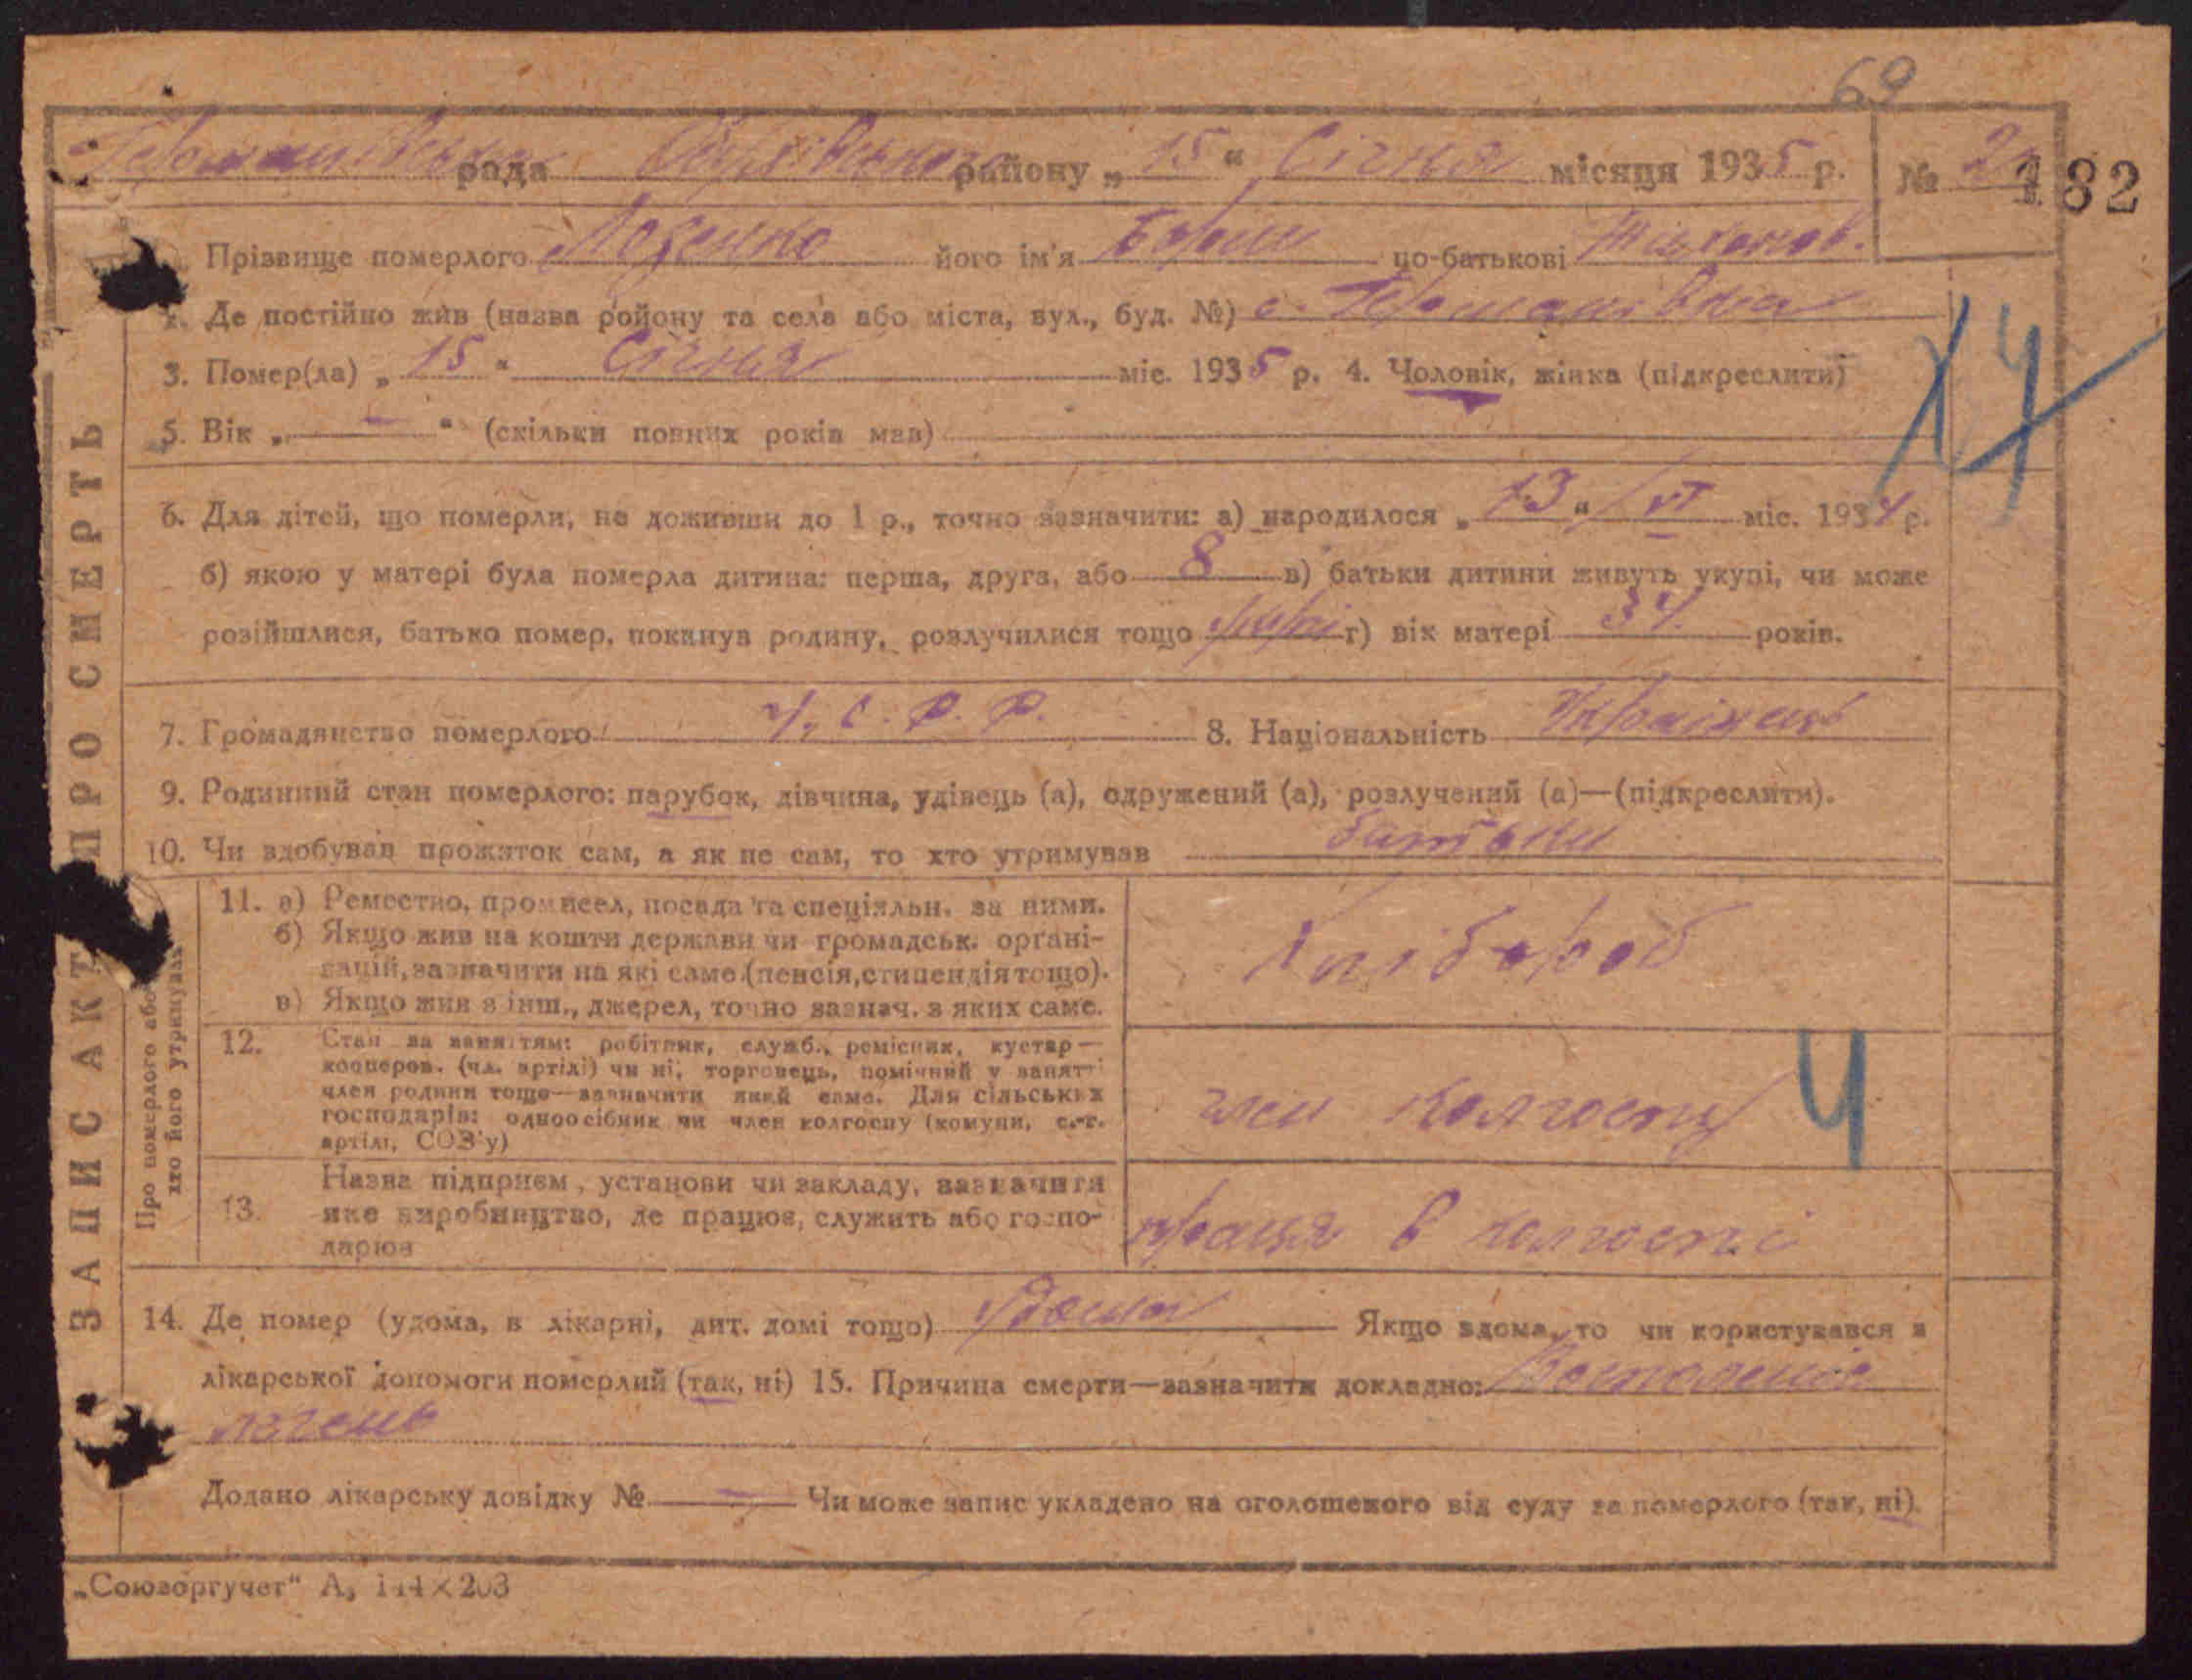 69
Германівська рада Обухівського району „15“ Січня місяця 1935 р. № 2
182
Прізвище померлого Лозенко його ім'я Борис по-батькові Тихонов.
2. Де постійно жив (назва району та села або міста, вул., буд. №) с. Германівка
3. Помер(ла) „15“ Січня міс. 1935 р. 4. Чоловік, жінка (підкреслити)
5. Вік „ — “ (скільки повних років мав)
6. Для дітей, що померли, не доживши до 1 р., точно зазначити: а) народилося „13“ VI міс. 1934 р.
б) якою у матері була померла дитина: перша, друга, або 8 в) батьки дитини живуть укупі, чи може
розійшлися, батько помер, покинув родину, розлучилися тощо г) вік матері 34 років.
7. Громадянство померлого У. С. Р. Р. 8. Національність Українець
9. Родинний стан померлого: парубок, дівчина, удівець (а), одружений (а), розлучений (а)—(підкреслити).
10. Чи здобував прожиток сам, а як не сам, то хто утримував батьки
ЗАПИС АКТ ПРО СМЕРТЬ
Про померлого або
хто його утримував
11. а) Ремество, промисел, посада та спеціяльн. за ними.
б) Якщо жив на кошти держави чи громадськ. органі-
зацій, зазначити на які саме (пенсія, стипендія тощо).
в) Якщо жив з інш., джерел, точно зазнач. з яких саме.
Хлібороб
12. Стан за заняттям: робітник, служб., ремісник, кустар—
кооперов. (чл. артілі) чи ні, торговець, помічний у занятті
член родини тощо—зазначити який саме. Для сільських
господарів: одноосібник чи член колгоспу (комуни, с.-г.
артілі, СОЗ'у)
член колгоспу 4
13. Назва підприєм., установи чи закладу, зазначити
яке виробництво, де працює, служить або госпо-
дарює
праця в колгоспі
14. Де помер (удома, в лікарні, дит. домі тощо) удома Якщо вдома, то чи користувався з
лікарської допомоги померлий (так, ні) 15. Причина смерти—зазначити докладно: Воспаленіе
легень
Додано лікарську довідку № — Чи може запис укладено на оголошеного від суду за померлого (так, ні).
„Союзоргучет“ А₅ 144×203